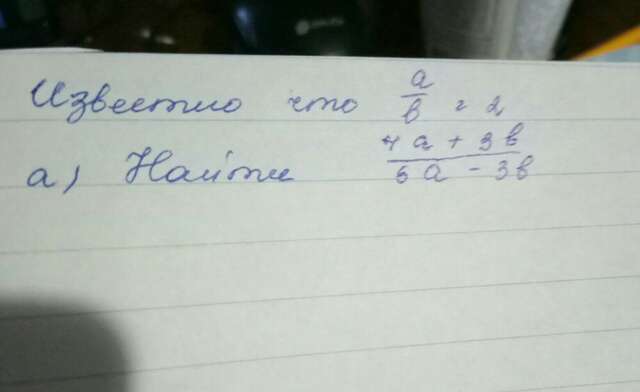 Известно что a/b = 2
а) Найти (4a + 3b)/(5a - 3b)